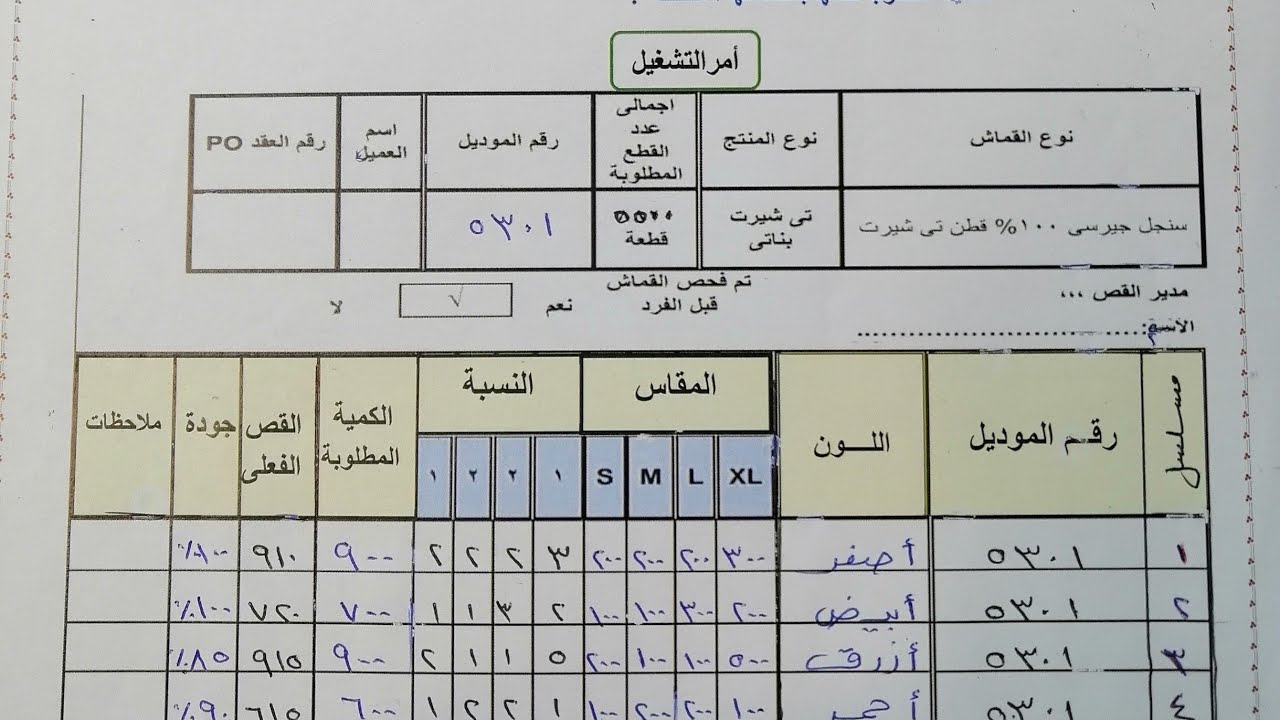 أمر التشغيل
نوع القماش نوع المنتج اجمالى عدد القطع المطلوبة رقم الموديل اسم العميل رقم العقد PO
سنجل جيرسى ١٠٠% قطن تى شيرت تى شيرت بناتى قطعة ٥٣٠١
مدير القص ،،، تم فحص القماش قبل الفرد نعم √ لا
الأسم:..............................
مسلسل رقم الموديل اللون المقاس النسبة الكمية المطلوبة القص الفعلى جودة ملاحظات
XL L M S ١ ٢ ٢ ١
١ ٥٣٠١ أصفر ٣٠٠ ٢٠٠ ٢٠٠ ٢٠٠ ٣ ٢ ٢ ٢ ٩٠٠ ٩١٠ ١٠٠٪
٢ ٥٣٠١ أبيض ٢٠٠ ٣٠٠ ١٠٠ ١٠٠ ٢ ٣ ١ ١ ٧٠٠ ٧٢٠ ١٠٠٪
٣ ٥٣٠١ أزرق ٥٠٠ ١٠٠ ١٠٠ ٢٠٠ ٥ ١ ١ ٢ ٩٠٠ ٩١٥ ٨٥٪
٤ ٥٣٠١ أحمر ١٠٠ ٢٠٠ ٢٠٠ ١٠٠ ١ ٢ ٢ ١ ٦٠٠ ٦١٥ ٩٠٪